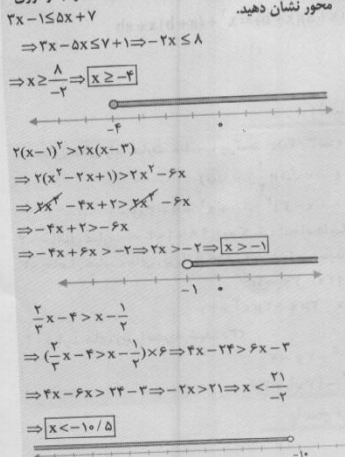 محور نشان دهید.
۳x−۱≤۵x+۷
⇒۳x−۵x≤۷+۱⇒−۲x≤۸
⇒x≥۸/−۲⇒x≥−۴
−۴
۲(x−۱)²>۲x(x−۳)
⇒۲(x²−۲x+۱)>۲x²−۶x
⇒۲x²−۴x+۲>۲x²−۶x
⇒−۴x+۲>−۶x
⇒−۴x+۶x>−۲⇒۲x>−۲⇒x>−۱
−۱
۲/۳x−۴>x−۱/۲
⇒(۲/۳x−۴>x−۱/۲)×۶⇒۴x−۲۴>۶x−۳
⇒۴x−۶x>۲۴−۳⇒−۲x>۲۱⇒x<۲۱/−۲
⇒x<−۱۰/۵
−۱۰